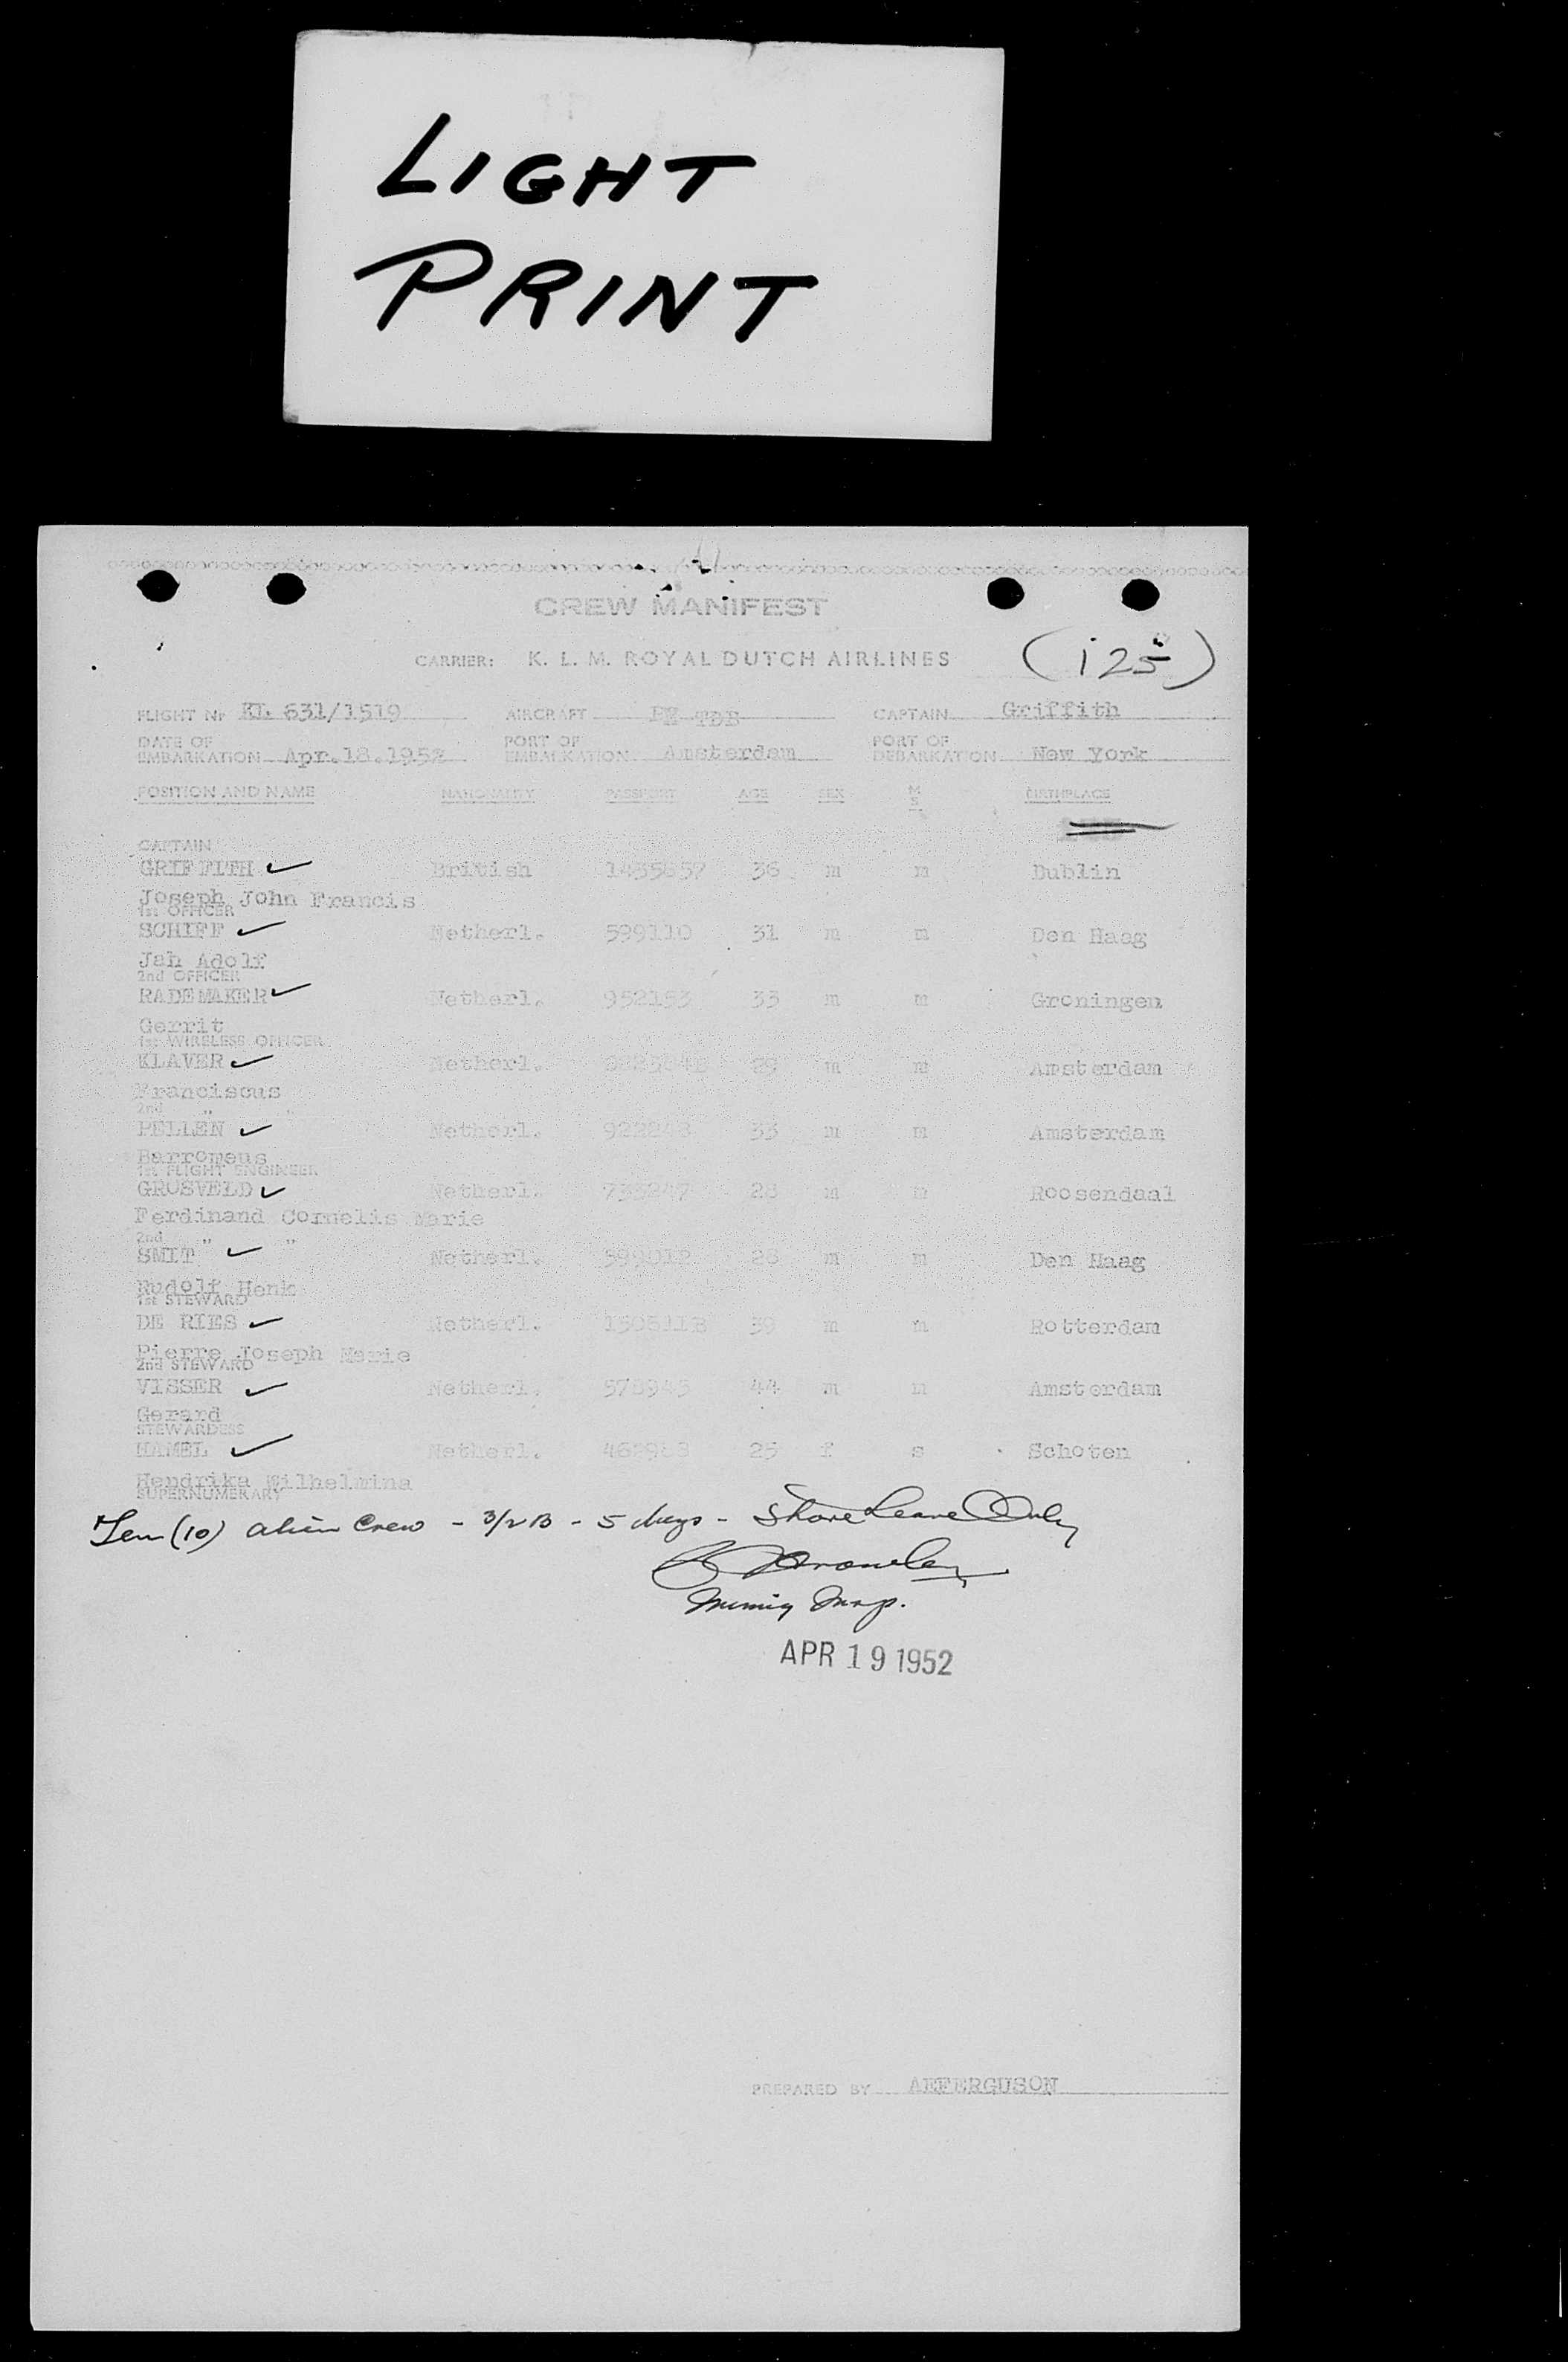 LIGHT
PRINT
CREW MANIFEST
CARRIER: K. L. M. ROYAL DUTCH AIRLINES (125)
FLIGHT Nr KL 631/1519 AIRCRAFT PH-TDB CAPTAIN Griffith
DATE OF EMBARKATION Apr.18.1952 PORT OF EMBARKATION Amsterdam PORT OF DEBARKATION New York
POSITION AND NAME NATIONALITY PASSPORT AGE SEX M S BIRTHPLACE
CAPTAIN
GRIFFITH British 36 m m Dublin
Joseph John Francis
1st OFFICER
SCHIFF Netherl. 599110 31 m m Den Haag
Jan Adolf
2nd OFFICER
RADEMAKER Netherl. 952153 33 m m Groningen
Gerrit
1st WIRELESS OFFICER
KLAVER Netherl. 29 m m Amsterdam
Franciscus
2nd " "
PELLEN Netherl. 33 m m Amsterdam
Barromeus
1st FLIGHT ENGINEER
GROSVELD Netherl. 28 m m Roosendaal
Ferdinand Cornelis Marie
2nd " "
SMIT Netherl. 28 m m Den Haag
Rudolf Henk
1st STEWARD
DE RIES Netherl. 39 m m Rotterdam
Pierre Joseph Marie
2nd STEWARD
VISSER Netherl. 44 m m Amsterdam
Gerard
STEWARDESS
HAMEL Netherl. 25 f s Schoten
Hendrika Wilhelmina
SUPERNUMERARY
Ten (10) alien Crew - 3/2 B - 5 days - Shore Leave Only
Immig Insp.
APR 19 1952
PREPARED BY AEFERGUSON